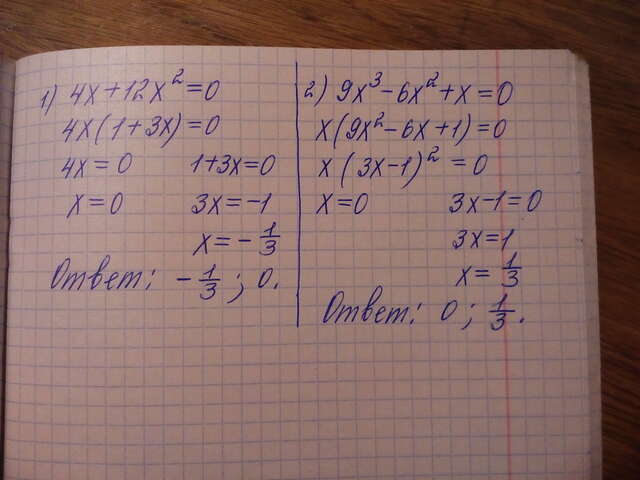 1) 4x+12x²=0
4x(1+3x)=0
4x=0 1+3x=0
x=0 3x=-1
x=-1/3
Ответ: -1/3; 0.
2) 9x³-6x²+x=0
x(9x²-6x+1)=0
x(3x-1)²=0
x=0 3x-1=0
3x=1
x=1/3
Ответ: 0; 1/3.